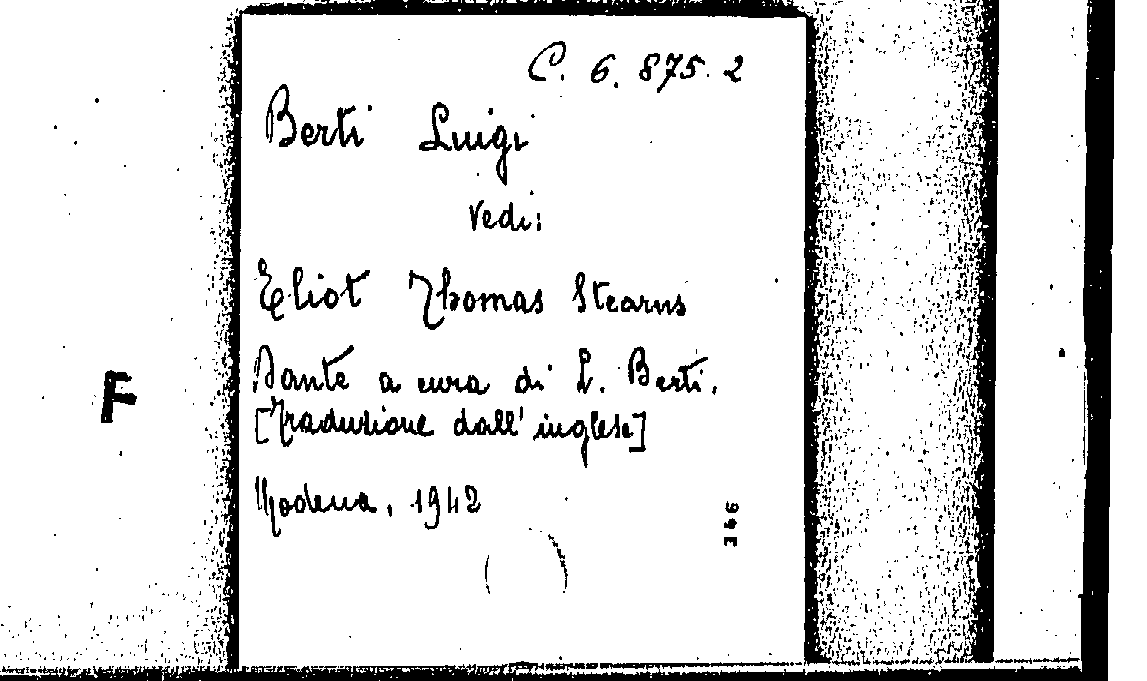 C. 6. 875. 2
Berti Luigi
Vedi:
Eliot Thomas Stearns
Dante a cura di L. Berti.
[Traduzione dall' inglese]
Modena, 1942
F